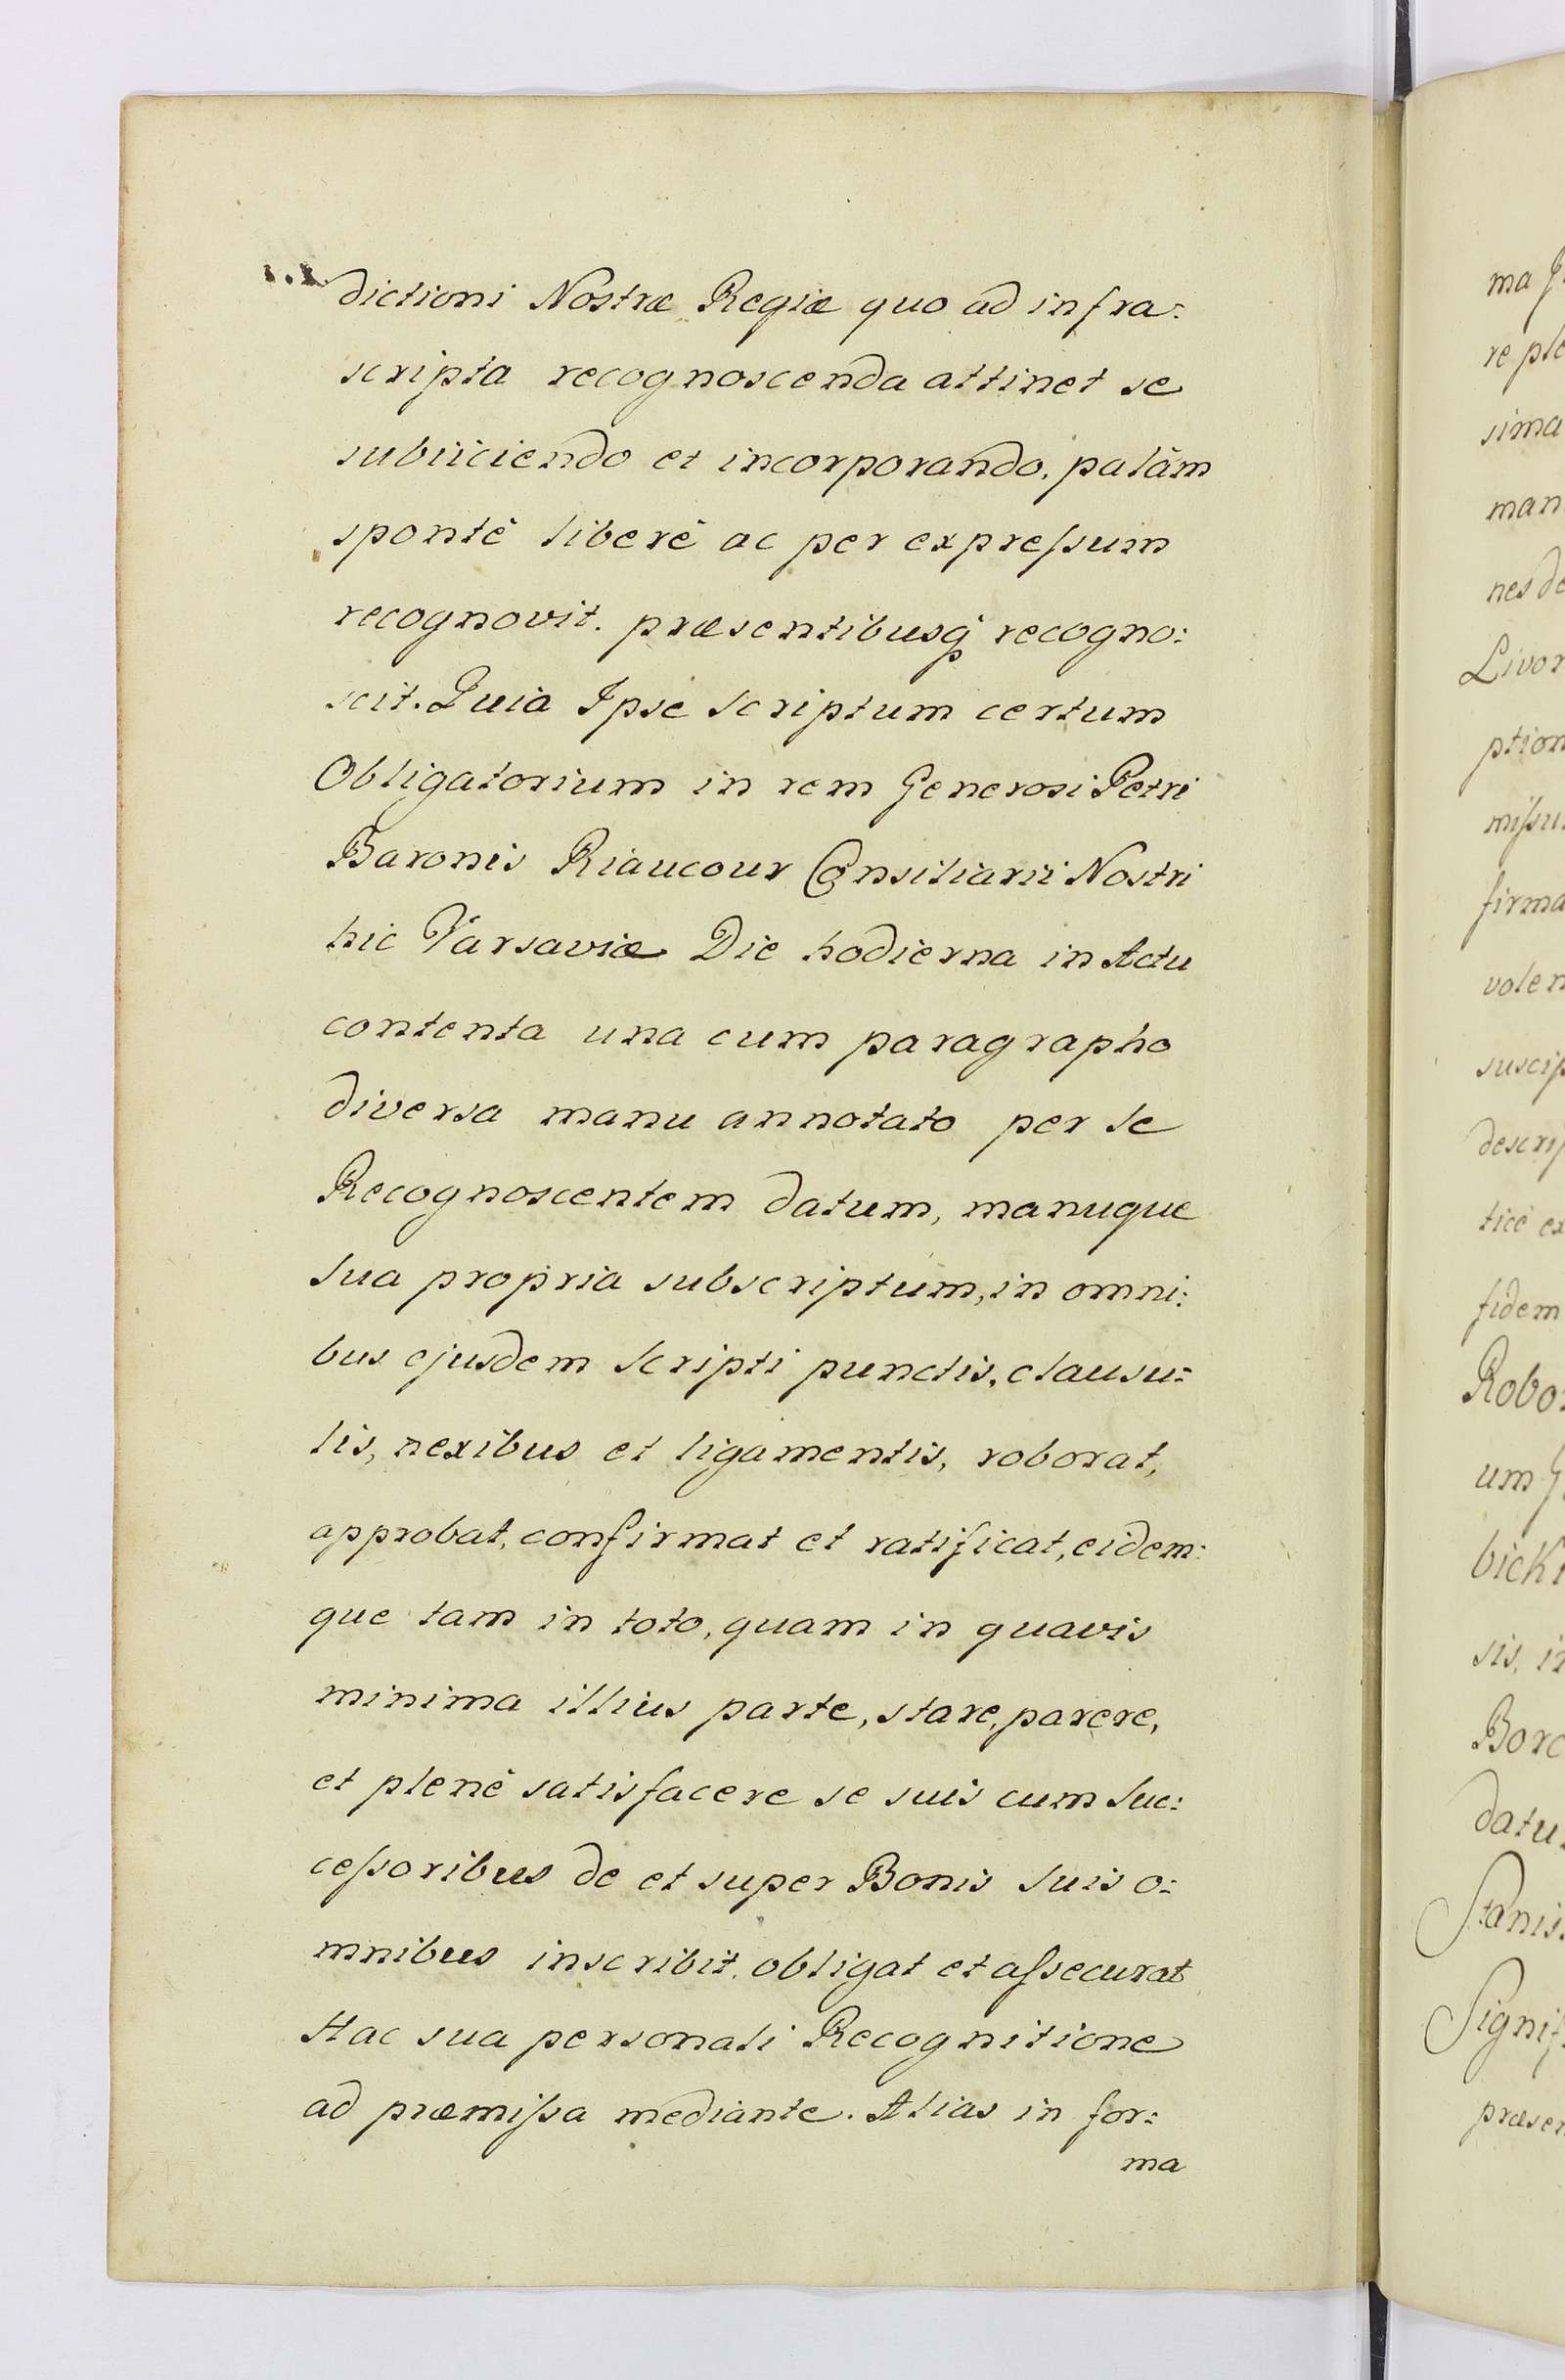 dictioni Nostræ Regiæ quo ad infra:
scripta recognoscenda attinet se
subiiciendo et incorporando, palàm
spontè liberè ac per expreſsum
recognovit. præsentibusq́ recogno:
scit. Quia Ipse scriptum certum
Obligatorium in rem Generosi Petri
Baronis Riaucour Consiliarii Nostri
hic Varsaviæ Die hodierna in Actu
contenta una cum paragrapho
diversa manu annotato per se
Recognoscentem datum, manuque
sua propria subscriptum, in omni:
bus ejusdem scripti punctis, clausu:
lis, nexibus et ligamentis, roborat,
approbat, confirmat et ratificat, eidem:
que tam in toto, quam in quavis
minima illius parte, stare, parere,
et plenè satisfacere se suis cum suc:
ceſsoribus de et super Bonis suis o:
mnibus inscribit, obligat et aſsecurat
Hac sua personali Recognitione
ad præmiſsa mediante. Alias in for:
ma
ma
re ple
sima
man
nes de
Livon
ption
miſsu
firma
volen
suscip
descrip
ticè ex
fidem
Robo:
um G
bicki
sis, in
Borc
datu
Stanis
Signif
præsen